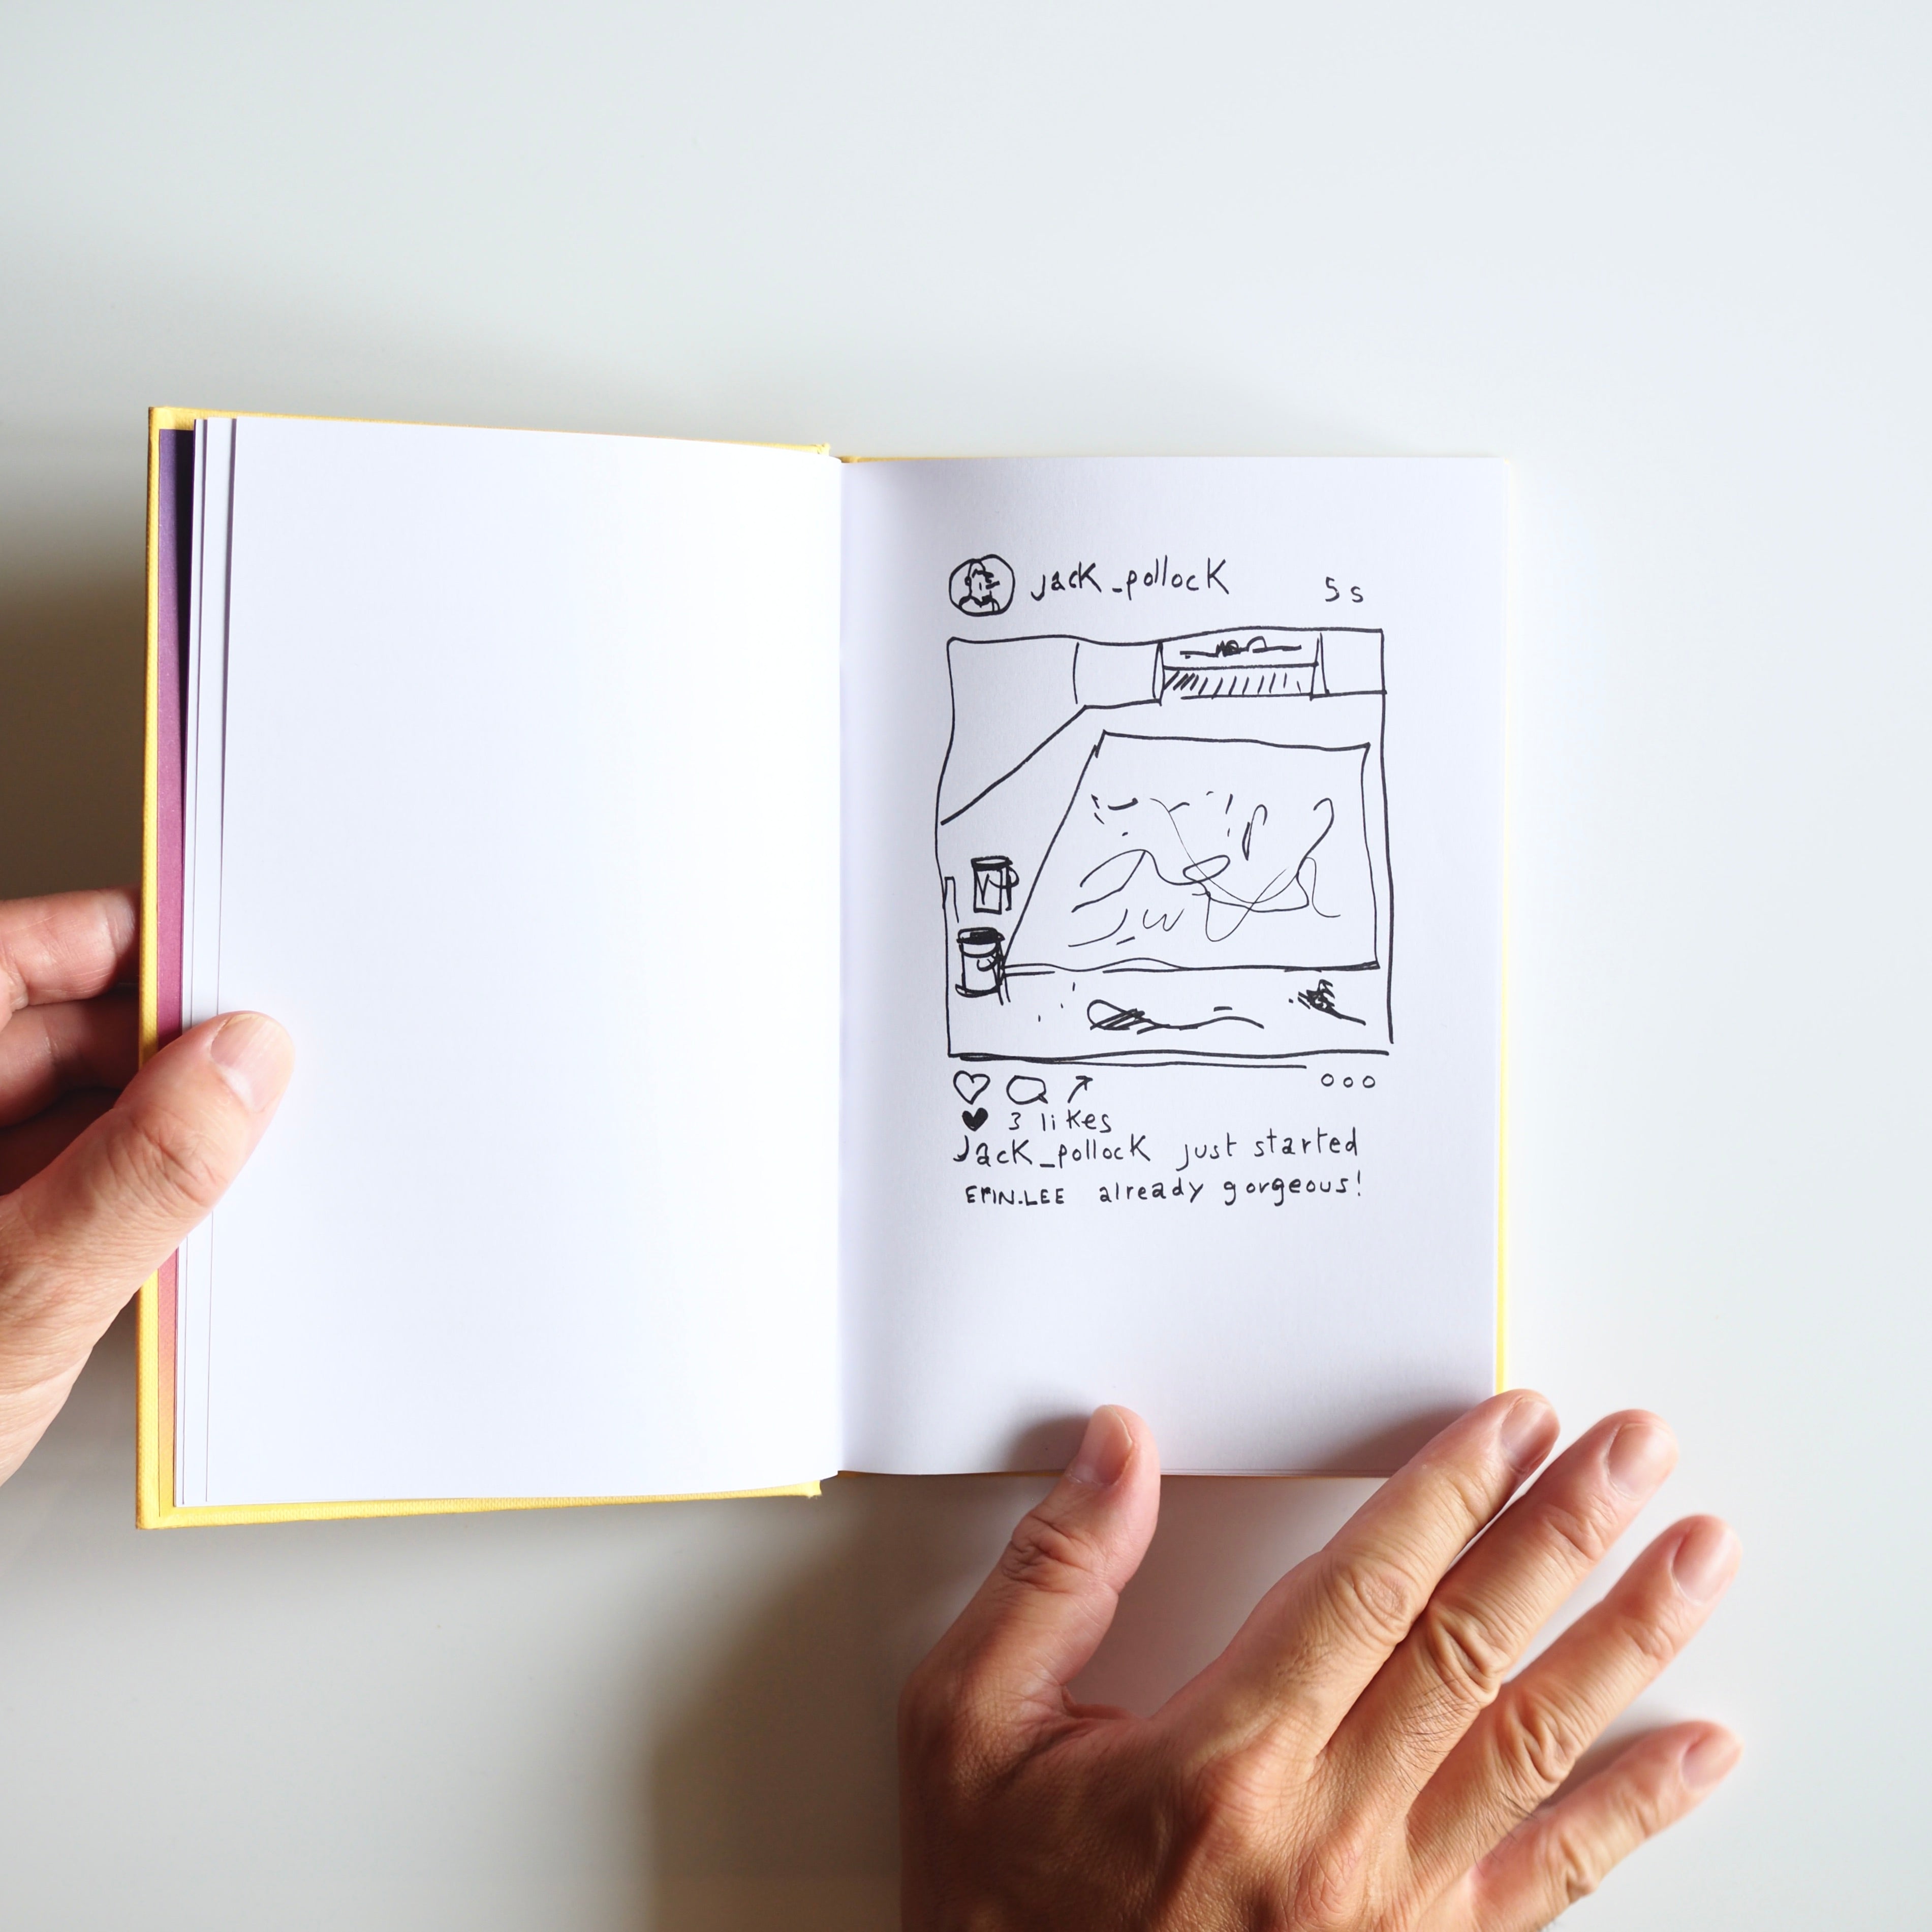 jack_pollock 5s
3 likes
Jack_pollock just started
ERIN.LEE already gorgeous!